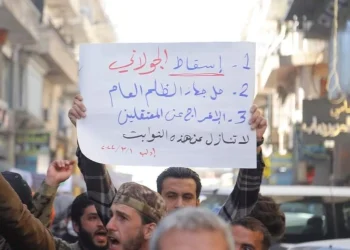 1- إسقاط الجولاني
2- حل جهاز الظلم العام
3- الإفراج عن المعتقلين
لا تنازل عن هذه الثوابت
إدلب